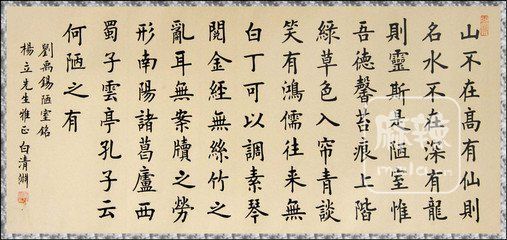 山不在高有仙則
名水不在深有龍
則靈斯是陋室惟
吾德馨苔痕上階
綠草色入帘青談
笑有鴻儒往來無
白丁可以調素琴
閱金經無絲竹之
亂耳無案牘之勞
形南陽諸葛廬西
蜀子雲亭孔子云
何陋之有
劉禹錫陋室銘
楊立先生雅正 白清
麻辣